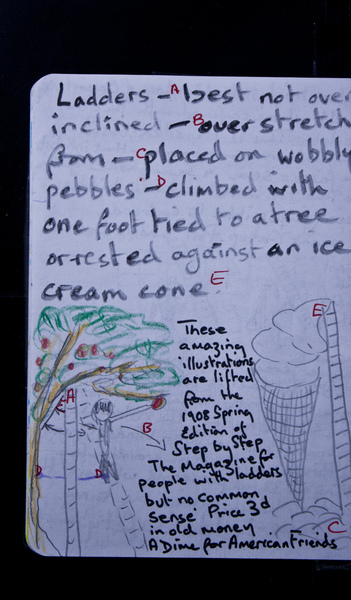 Ladders - A best not over
inclined - B over stretch
from - C placed on wobbly
pebbles - D climbed with
one foot tied to a tree
or rested against an ice
cream cone. E
These
amazing
illustrations
are lifted
from the
1908 Spring
Edition of
Step by Step
The Magazine for
people with ladders
but no common
sense Price 3d
in old money
A Dime for American Friends
A
B
D
D
E
C